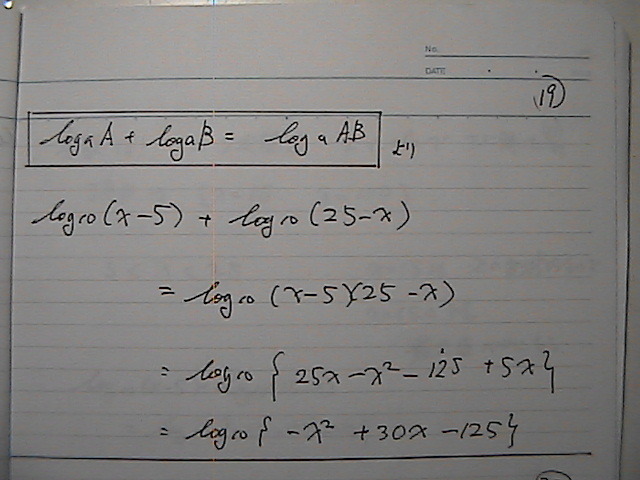 No.
DATE
(19)
logₐA + logₐB = logₐAB より
log₁₀(x-5) + log₁₀(25-x)
= log₁₀(x-5)(25-x)
= log₁₀{25x-x²-125+5x}
= log₁₀{-x²+30x-125}